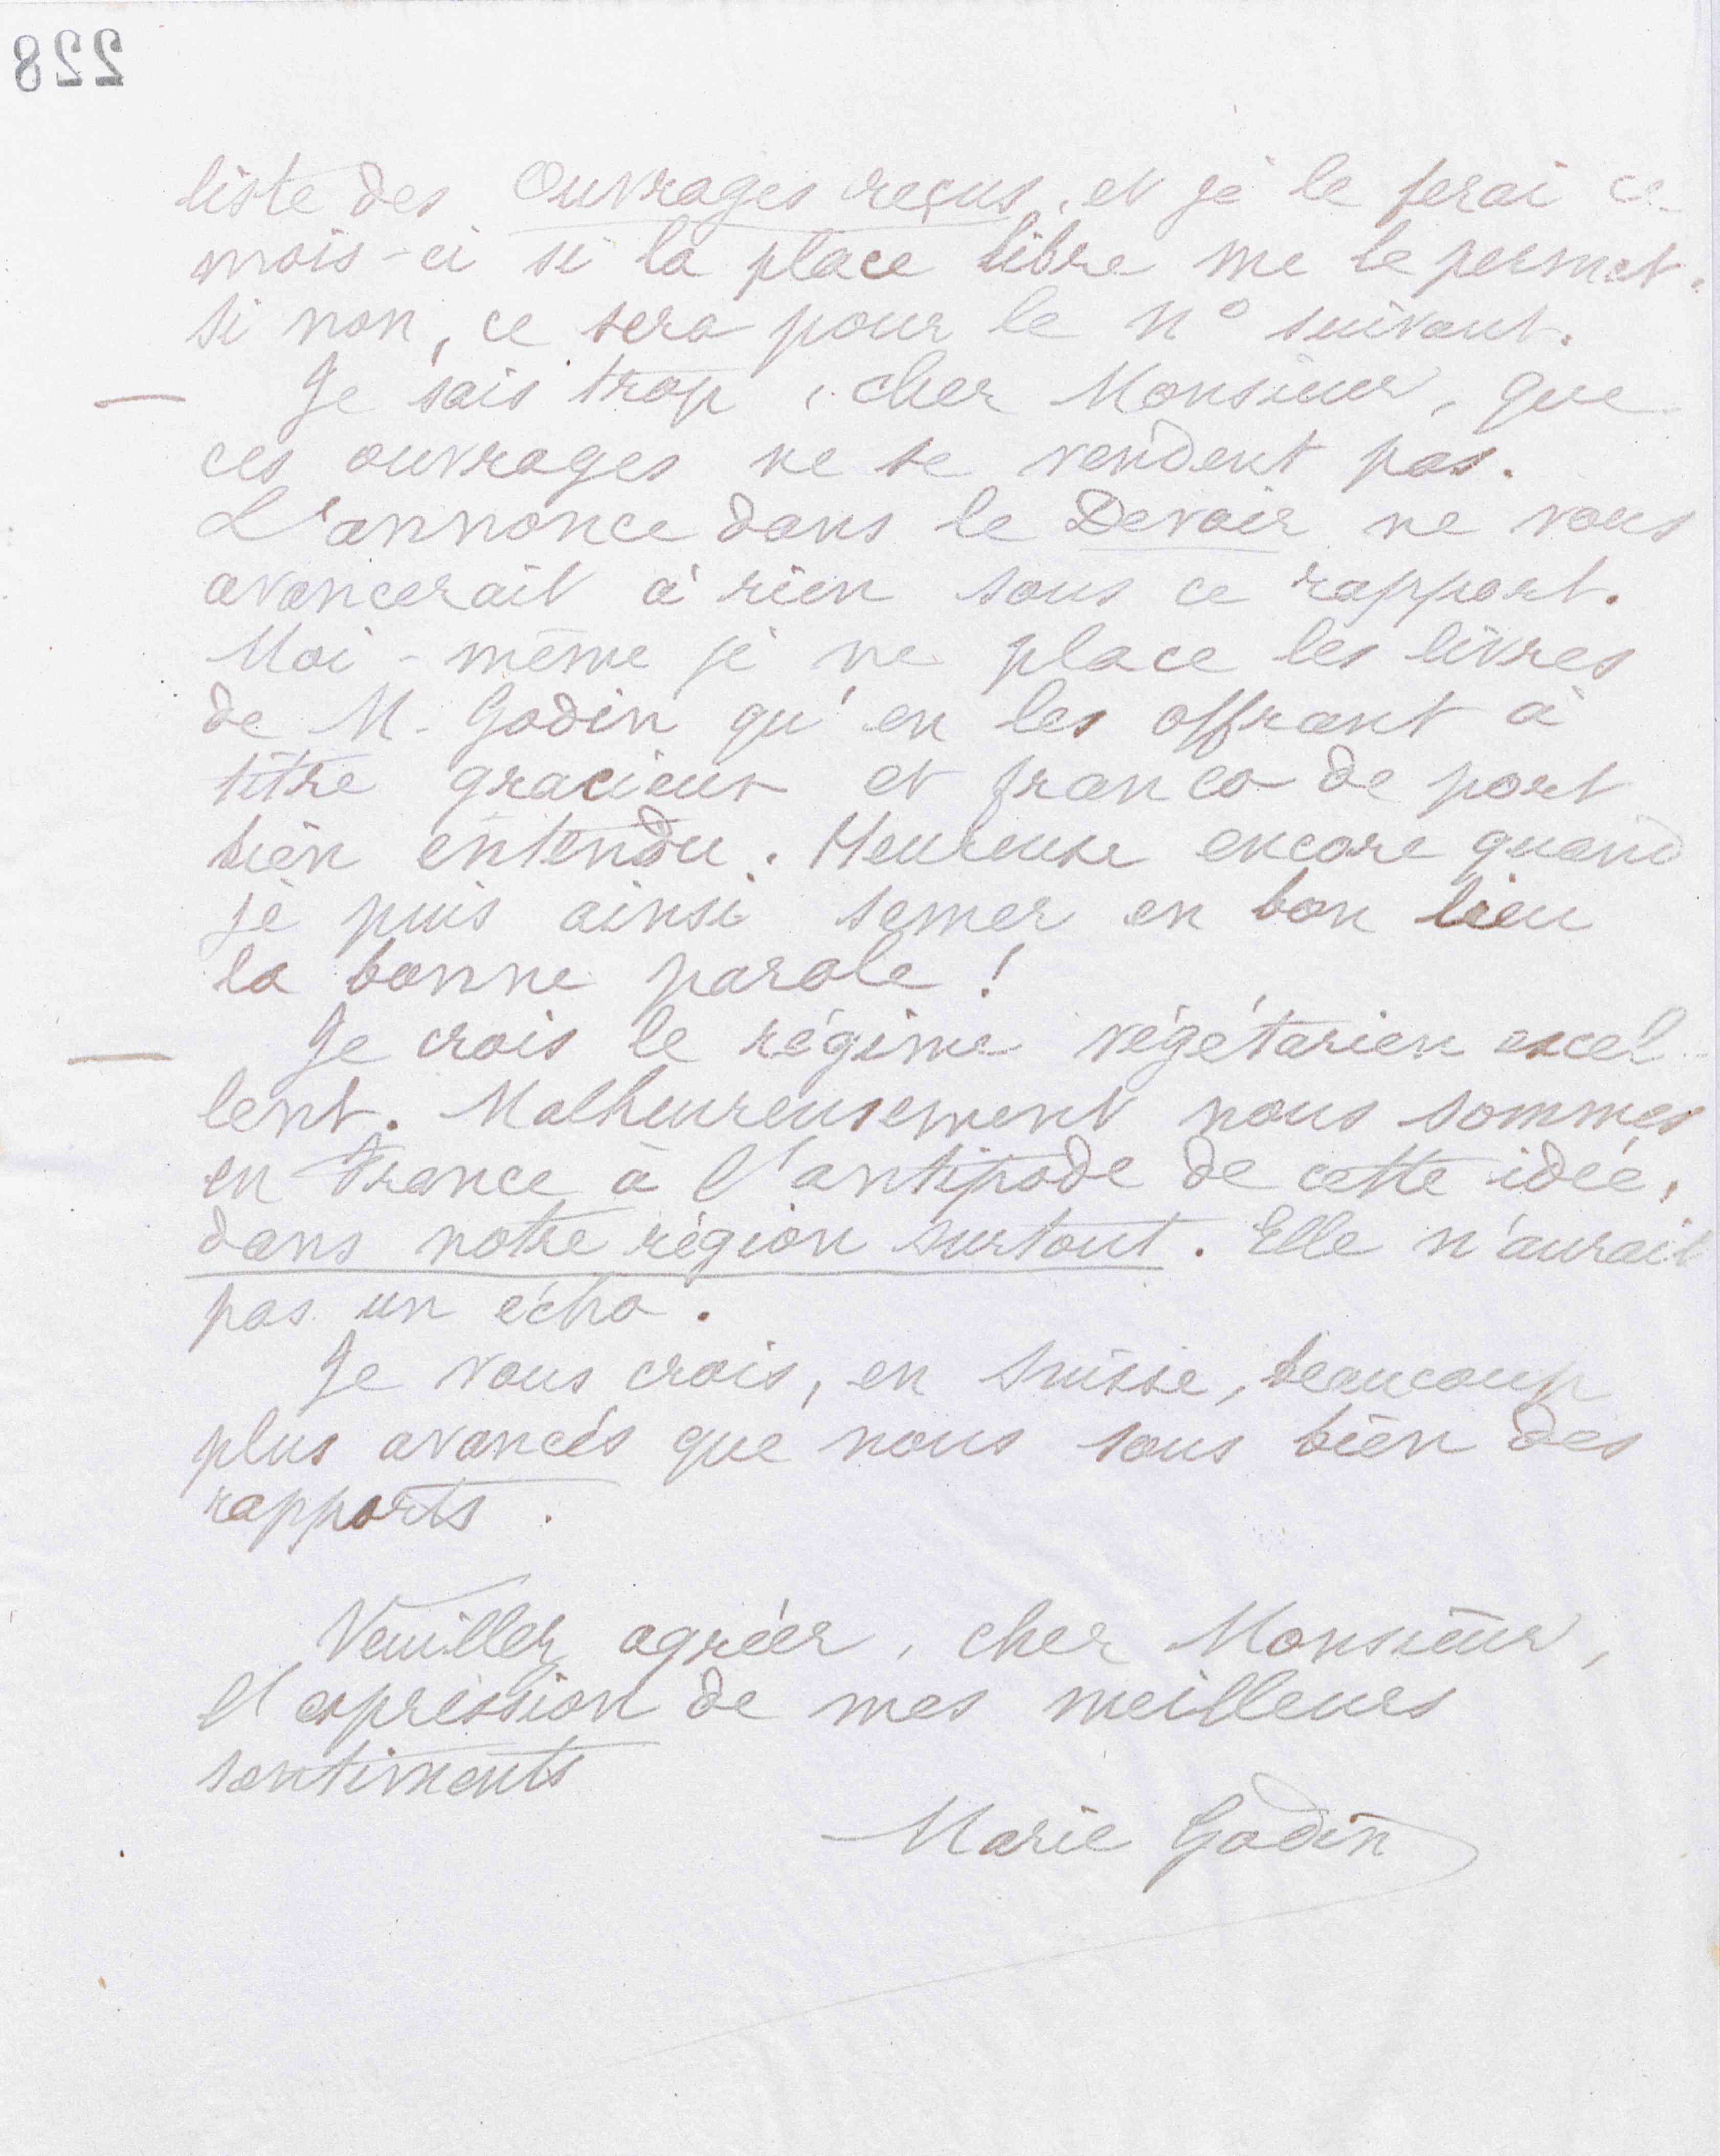 228
liste des Ouvrages reçus, et je le ferai ce
mois-ci si la place libre me le permet.
si non, ce sera pour le n° suivant.
— Je sais trop, cher Monsieur, que
ces ouvrages ne se vendent pas.
L'annonce dans le Devoir ne vous
avancerait à rien sous ce rapport.
Moi-même je ne place les livres
de M. Godin qu'en les offrant à
titre gracieux et franco de port
bien entendu. Heureuse encore quand
je puis ainsi semer en bon lieu
la bonne parole !
— Je crois le régime végétarien excel-
lent. Malheureusement nous sommes
en France à l'antipode de cette idée,
dans notre région surtout. Elle n'aurait
pas un écho.
Je vous crois, en Suisse, beaucoup
plus avancés que nous sous bien des
rapports.
Veuillez agréer, cher Monsieur,
l'expression de mes meilleurs
sentiments
Marie Godin